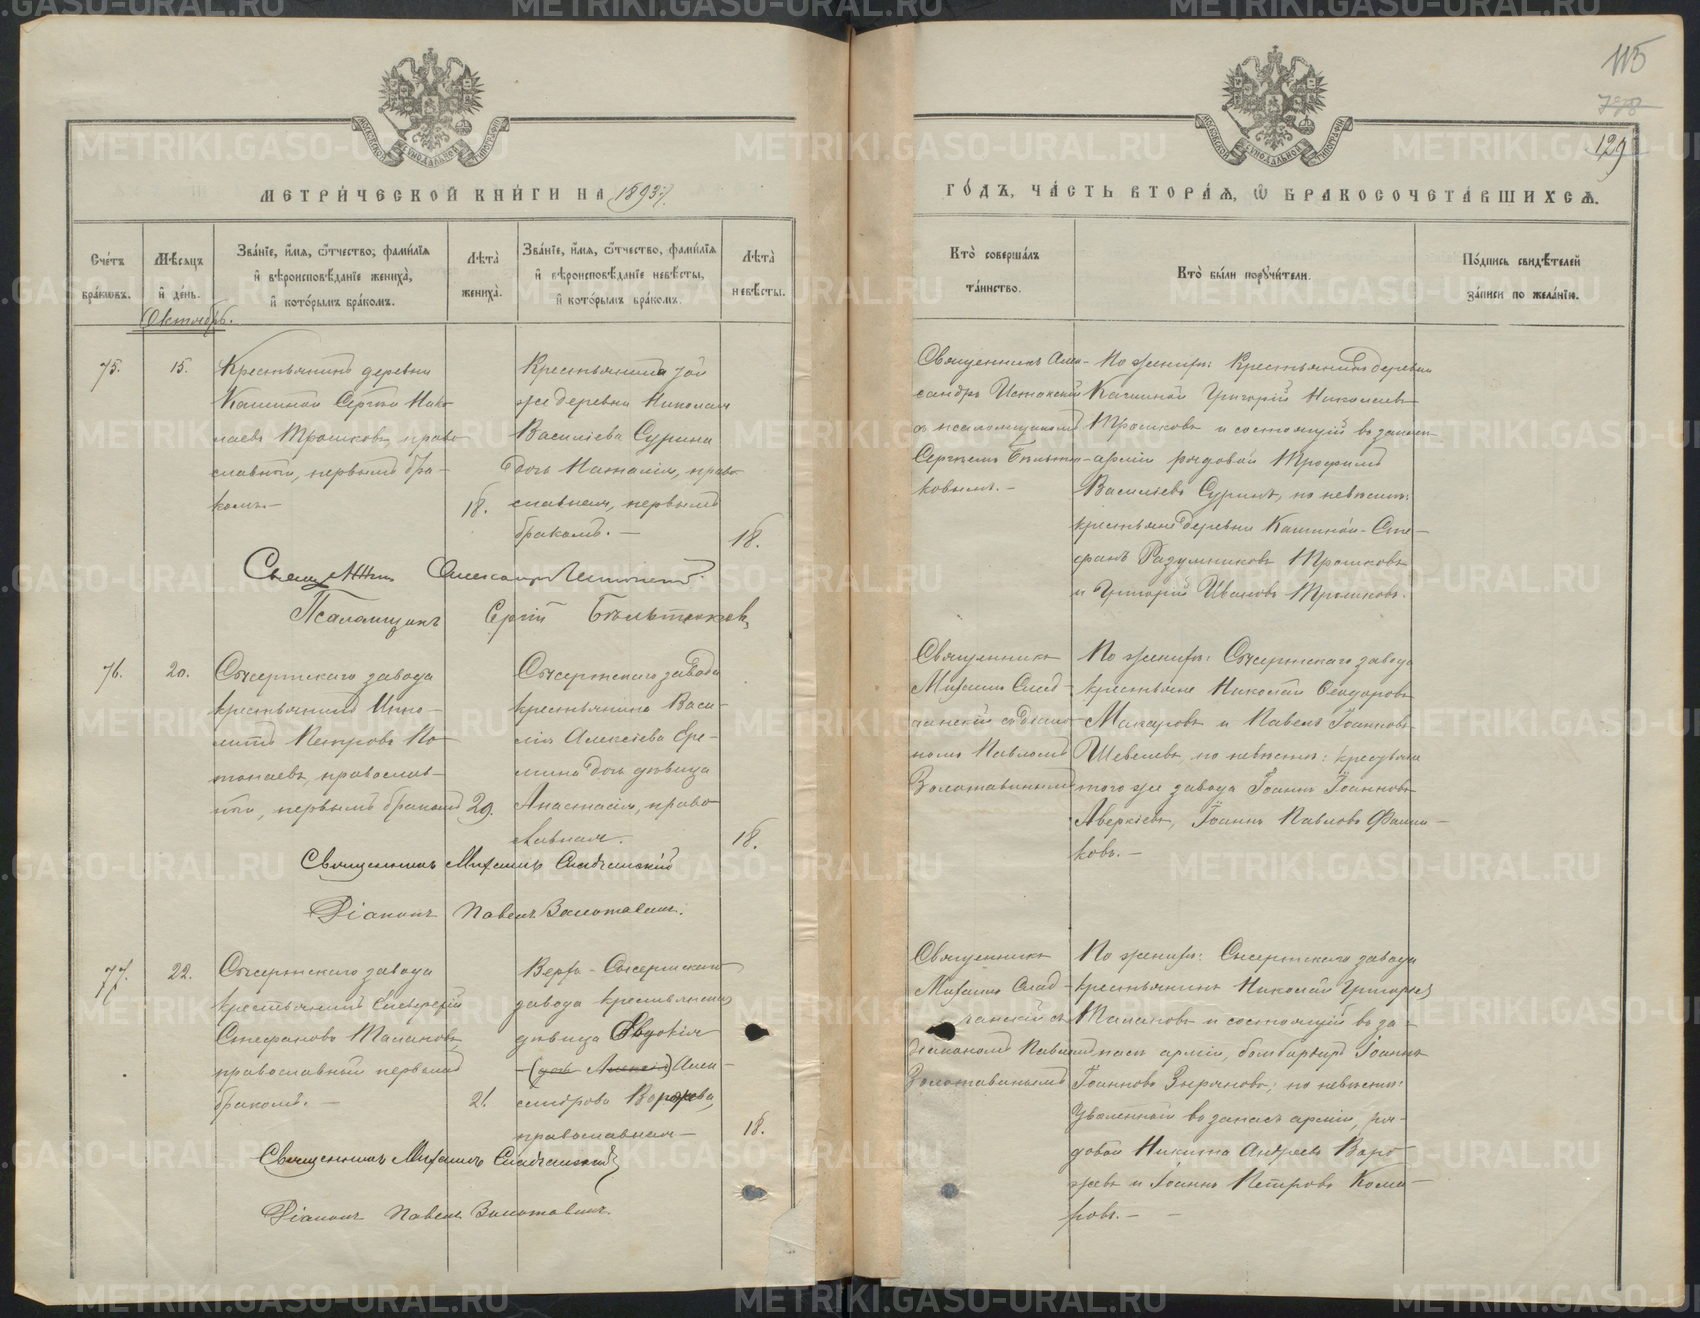 МЕТРИ́ЧЕСКОЙ КНИ́ГИ НА 1893 г.
ГО́ДЪ, ЧА́СТЬ ВТОРА́Я, Ѡ҆ БРАКОСОЧЕТА́ВШИХСѦ.
115
129
Сче́тъ бра́ковъ.
Мѣ́сѧцъ и҆ де́нь.
Зва́нїе, и҆́мѧ, ѻ҆́тчество, фами́лїѧ
и҆ вѣроисповѣ́данїе жениха̀,
и҆ кото́рымъ бра́комъ.
Лѣ́та̀ жениха̀.
Зва́нїе, и҆́мѧ, ѻ҆́тчество, фами́лїѧ
и҆ вѣроисповѣ́данїе невѣ́сты,
и҆ кото́рымъ бра́комъ.
Лѣ́та̀ невѣ́сты.
Кто̀ соверша́лъ
та́инство.
Кто̀ бы́ли порꙋчи́тели.
По́дпись свидѣ́телей
за́писи по жела́нїю.
Октябрь.
75.
15.
Крестьянинъ деревни
Кашиной Сергѣй Нико-
лаевъ Трошковъ, право-
славный, первымъ бра-
комъ.-
18.
Крестьянина той
же деревни Николая
Василіева Сурина
дочь Наталія, право-
славная, первымъ
бракомъ. -
18.
Священникъ Алек-
сандръ Истокскій
съ псаломщикомъ
Сергѣемъ Бѣльтю-
ковымъ. -
По женихѣ: Крестьянинъ деревни
Кашиной Григорій Николаевъ
Трошковъ и состоящій въ запасѣ
арміи рядовой Трофимъ
Василіевъ Суринъ, по невѣстѣ:
крестьяне деревни Кашиной-Сте-
фанъ Разумниковъ Трошковъ
и Григорій Ивановъ Трошковъ.
Александръ Истокскій.
Псаломщикъ Сергій Бѣльтюковъ
76.
20.
Сысертскаго завода
крестьянинъ Иппо-
литъ Петровъ По-
топаевъ, православ-
ный, первымъ бракомъ
29.
Сысертскаго завода
крестьянина Васи-
лія Алексіева Ере-
мина дочь дѣвица
Анастасія, право-
славная.
18.
Священникъ
Михаилъ Слад-
чанскій съ діако-
номъ Павломъ
Золотавинымъ
По женихѣ: Сысертскаго завода
крестьяне Николай Ѳеодоровъ
Макаровъ и Павелъ Іоанновъ
Шевелевъ, по невѣстѣ: крестьяне
того же завода Іоаннъ Іоанновъ
Аверкіевъ, Іоаннъ Павловъ
ковъ. -
Священникъ Михаилъ Сладчанскій
Діаконъ Павелъ Золотавинъ.
77.
22.
Сысертскаго завода
крестьянинъ Елевферій
Стефановъ Талановъ,
православный первымъ
бракомъ. -
21.
Верхъ-Сысертскаго
завода крестьянская
дѣвица Евдокія
(дочь Алексія) Алек-
сандрова Ворожева,
православная -
18.
Священникъ
Михаилъ Слад-
чанскій съ
діакономъ Павломъ
Золотавинымъ
По женихѣ: Сысертскаго завода
крестьянинъ Николай Григорьевъ
Талановъ и состоящій въ за-
пасѣ арміи, бомбардиръ Іоаннъ
Іоанновъ Зыряновъ; по невѣстѣ:
Уволенный въ запасъ арміи, ря-
довой Никита Андреевъ Воро-
жевъ и Іоаннъ Петровъ Кома-
ровъ. - -
Священникъ Михаилъ Сладчанскій
Діаконъ Павелъ Золотавинъ.
METRIKI.GASO-URAL.RU